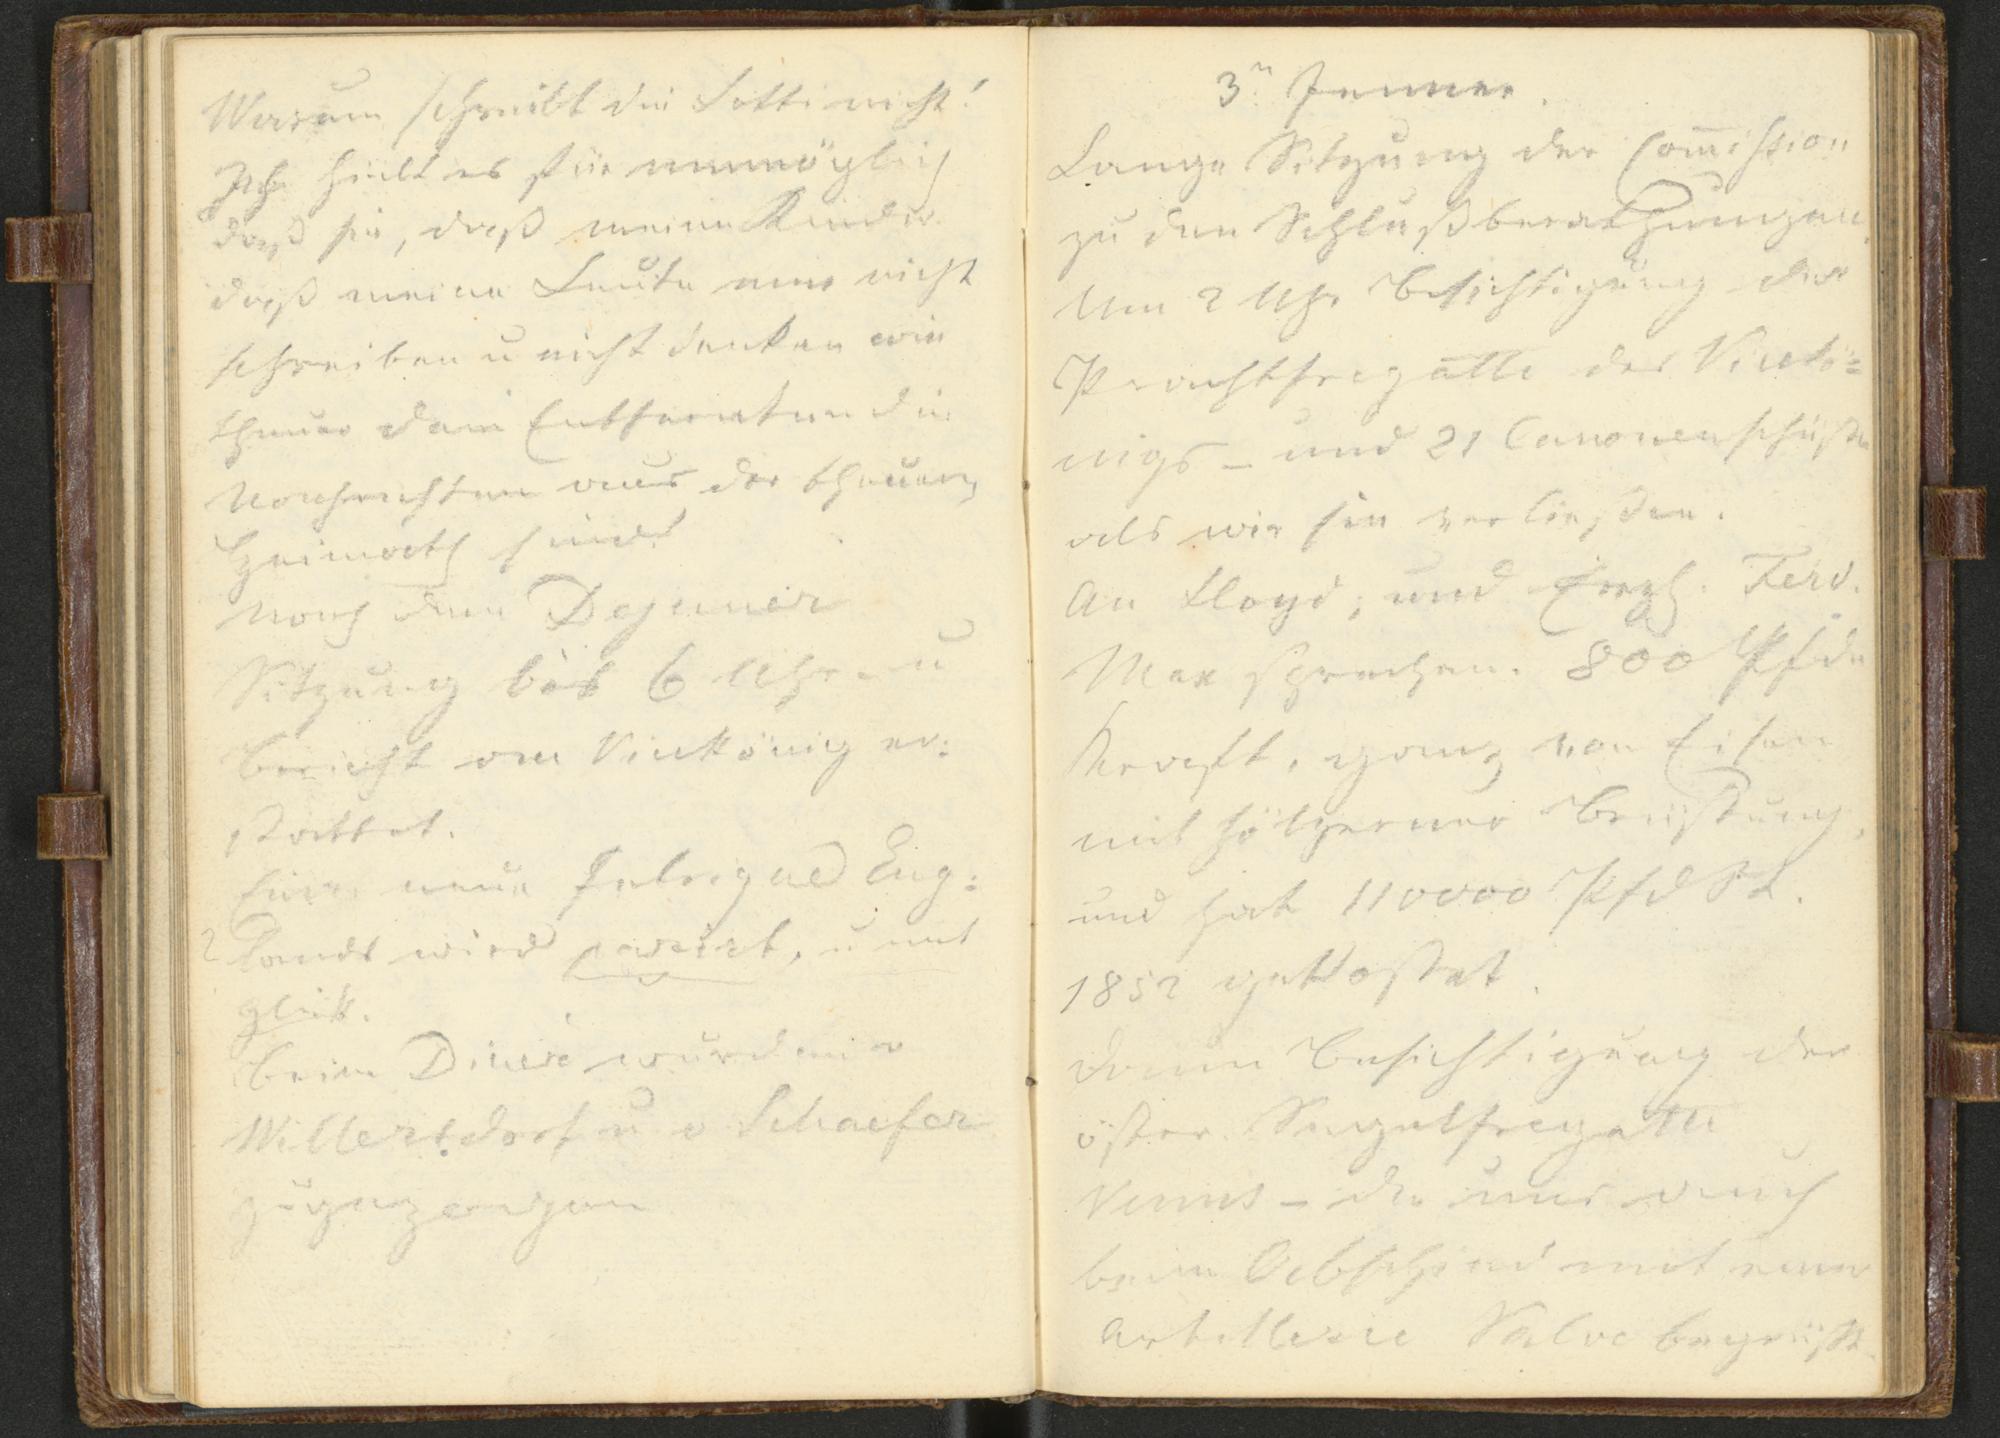 Warum schreibt die Lotti nicht!
Ich hielt es für unmöglich
daß sie, daß meine Kinder
daß meine Leute mir nicht
schreiben u nicht denken wie
theuer dem Entfernten die
Nachrichten aus der theuern
Heimath sind
Nach dem Dejeuner
Sitzung bis 6 Uhr u
Bericht vom Vicekönig er:
stattet.
Eine neue Intrigue Eng:
lands wird parirt, u mit
Glück.
Beim Diner wurden
Willersdorf u v Schaefer
zugezogen
3n Jenner.
Lange Sitzung der Comission
zu den Schlußberathungen.
Um 2 Uhr Besichtigung der
Prachtfregatte des Vicekö=
nigs – und 21 Canonenschüße
als wir sie verließen.
An Lloyd, und Erzh. Ferd.
Max sprechen. 800 Pfde
Kraft, ganz von Eisen
mit hölzerner Brüstung,
und hat 110000 Pfd St.
1852 gekostet.
Dann Besichtigung der
öster. Segelfregatte
Venus – die uns auch
beim Abschied mit einer
Artillerie Salve begrüßt